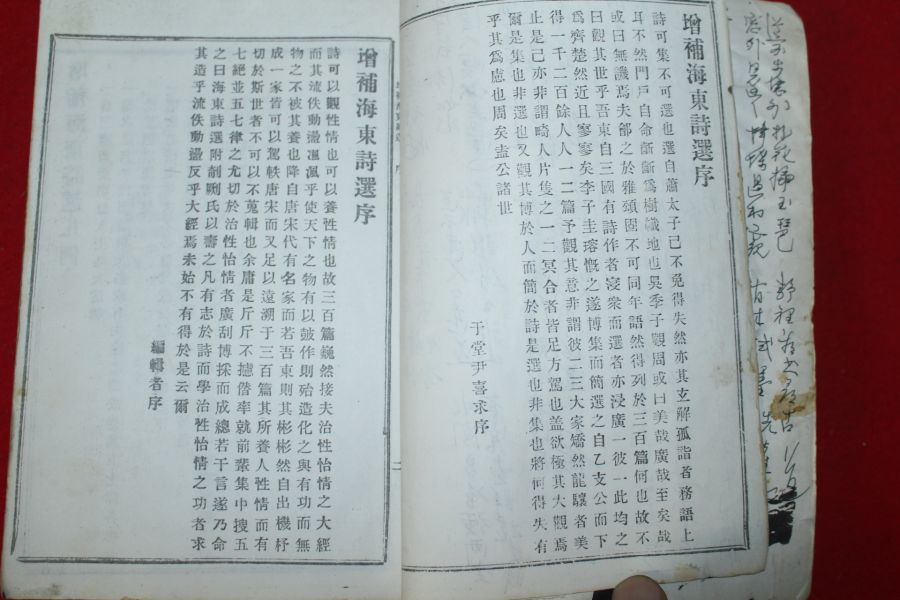 增補海東詩選序
詩可集不可選也選自蕭太子已不免得失然亦其支解孤詣者務語上
耳不然門戶自命斷斷爲樹幟地也吳季子觀周或曰美哉廣哉至矣哉
或曰無譏焉夫鄶之於雅頌固不可同年語然得列於三百篇何也故不
曰觀其世乎吾東自三國有詩作者寖衆而選者亦浸廣一彼一此均之
爲齊楚然近且寥寥矣李子圭瑢慨之遂博集而簡選之自乙支公而下
得一千二百餘人人一二篇予觀其意非謂彼二三大家矯然龍驤者美
止是已亦非謂畸人片隻之一二冥合者皆足方駕也盖欲極其大觀焉
爾是集也非選也又觀其博於人而簡於詩是選也非集也將何得失有
乎其爲慮也周矣盍公諸世
于堂尹喜求序
增補海東詩選序
詩可以觀性情也可以養性情也故三百篇巍然接夫治性怡情之大經
而其流佚動盪渢渢乎使天下之物有以皷作則殆造化之與有功而無
物之不被其養也降自唐宋代有名家而若吾東則其彬彬然自出機杼
成一家者皆可以駕軼唐宋而又足以遠溯于三百篇其所養人性情而有
切於斯世者不可以不蒐輯也余庸是斤斤不揆僭率就前輩集中搜五
七絶並五七律之尤切於治性怡情者廣刮博採而成總若干言遂乃命
之曰海東詩選附剞劂氏以壽之凡有志於詩而學治性怡情之功者求
其造乎流佚動盪反乎大經焉未始不有得於是云爾
編輯者序
二